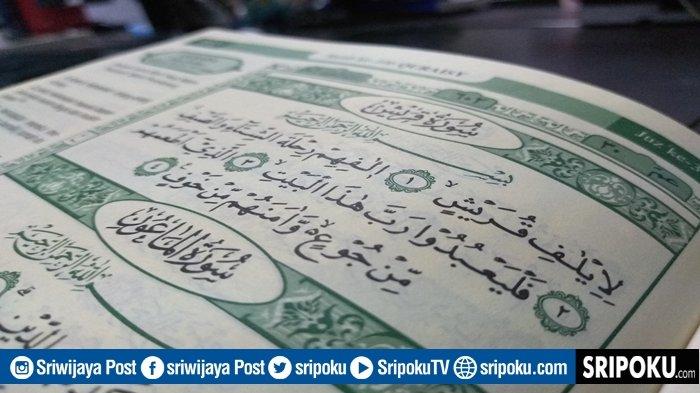 QURAISY
Juz ke-
٦٠٢
٣٠
سُورَةُ قُرَيْشٍ
بِسْمِ اللّٰهِ الرَّحْمٰنِ الرَّحِيْمِ
لِاِيْلٰفِ قُرَيْشٍ ١ اٖلٰفِهِمْ رِحْلَةَ الشِّتَاۤءِ وَالصَّيْفِ
٢ فَلْيَعْبُدُوْا رَبَّ هٰذَا الْبَيْتِ ٣ الَّذِيْٓ اَطْعَمَهُمْ
مِّنْ جُوْعٍ وَّاٰمَنَهُمْ مِّنْ خَوْفٍ ٤
سُورَةُ الْمَاعُوْنَ
بِسْمِ اللّٰهِ الرَّحْمٰنِ الرَّحِيْمِ
الدِّيْنِ
Sriwijaya Post sriwijaya Post sripoku SripokuTV sripoku.com
SRIPOKU.com